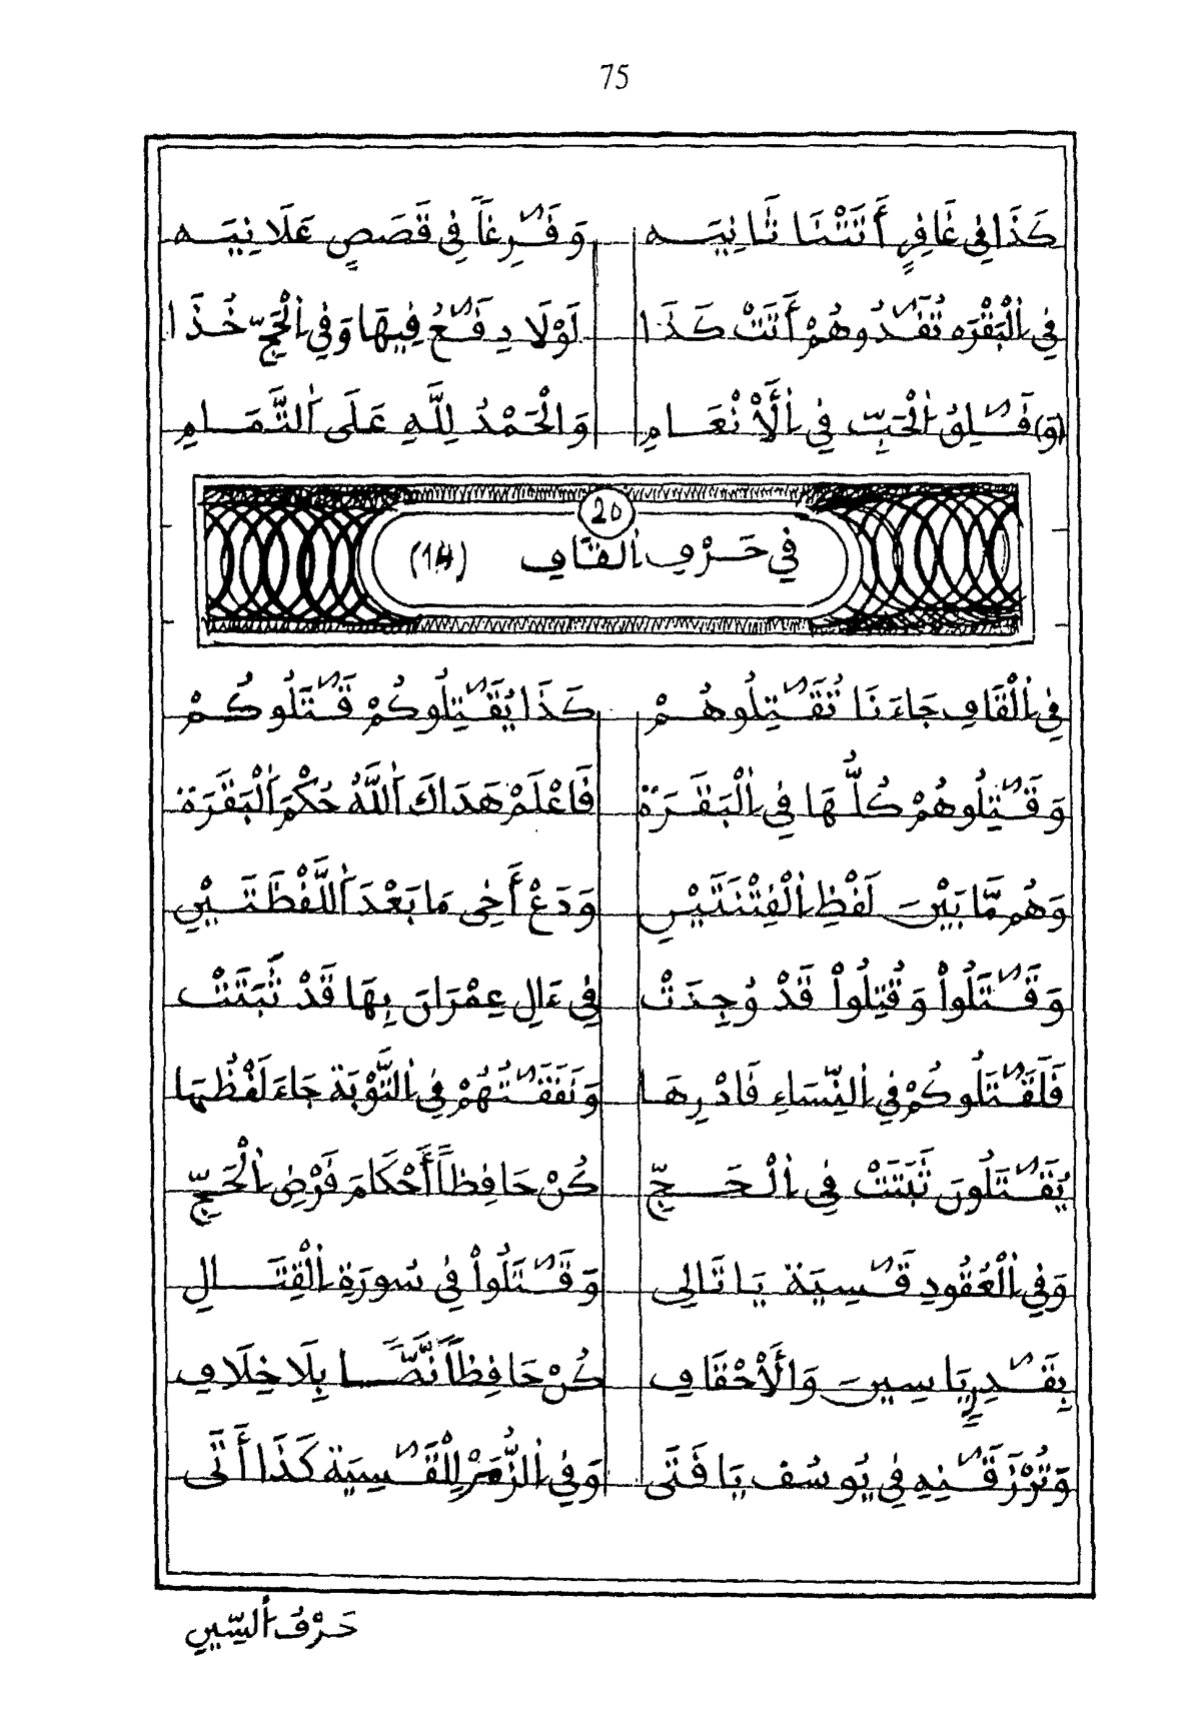 75
كَذَا فِي غَافِرٍ أَتَتْنَا ثَانِيَه وَفَٰرِغاً فِي قَصَصٍ عَلَانِيَه
فِي اِ۬لْبَقْرَه تُفَٰدُوهُمْ أَتَتْ كَذَا لَوْلَا دِفَٰعُ فِيهَا وَفِي اِ۬لْحَجِّ خُذَا
(وَ) فَٰلِقُ اُ۬لْحَبِّ فِي اِ۬لَأَنْعَامِ وَالْحَمْدُ لِلَّهِ عَلَى اَ۬لتَّمَامِ
20
فِي حَرْفِ اِ۬لقَافِ (14)
فِي اِ۬لْقَافِ جَاءَنَا تُقَٰتِلُوهُمْ كَذَا يُقَٰتِلُوكُمْ قَٰتَلُوكُمْ
وَقَٰتِلُوهُمْ كُلُّهَا فِي اِ۬لْبَقَرَة فَاعْلَمْ هَدَاكَ اَ۬للَّهُ حُكْمَ اَ۬لْبَقَرَة
وَهُم مَّا بَيْنَ لَفْظِ اِ۬لْفِتْنَتَيْنِ وَدَعْ أَخِي مَا بَعْدَ اَ۬للَّفْظَتَيْنِ
وَقَٰتَلُواْ وَقُتِلُواْ قَدْ وُجِدَتْ فِي ءَالِ عِمْرَانَ بِهَا قَدْ ثَبَتَتْ
فَلَقَٰتَلُوكُمْ فِي اِ۬لنِّسَاءِ فَادْرِهَا وَنَفَقَٰتُهُمْ فِي اِ۬لتَّوْبَة جَاءَ لَفْظُهَا
يُقَٰتَلُونَ ثَبَتَتْ فِي اِ۬لْحَجِّ كُنْ حَافِظاً أَحْكَامَ فَرْضِ اِ۬لْحَجِّ
وَفِي اِ۬لْعُقُودِ قَٰسِيَة يَا تَالِي وَقَٰتَلُواْ فِي سُورَةِ اِ۬لْقِتَالِ
بِقَٰدِرٍ يَاسِينَ وَالَأَحْقَافِ كُنْ حَافِظاً نَصًّا بِلَا خِلَافِ
وَتُرْزَقَٰنِهِ فِي يُوسُف يَا فَتَى وَفِي اِ۬لزُّمَرْ لِلْقَٰسِيَة كَذَا أَتَى
حَرْفُ اُ۬لسِّينِ